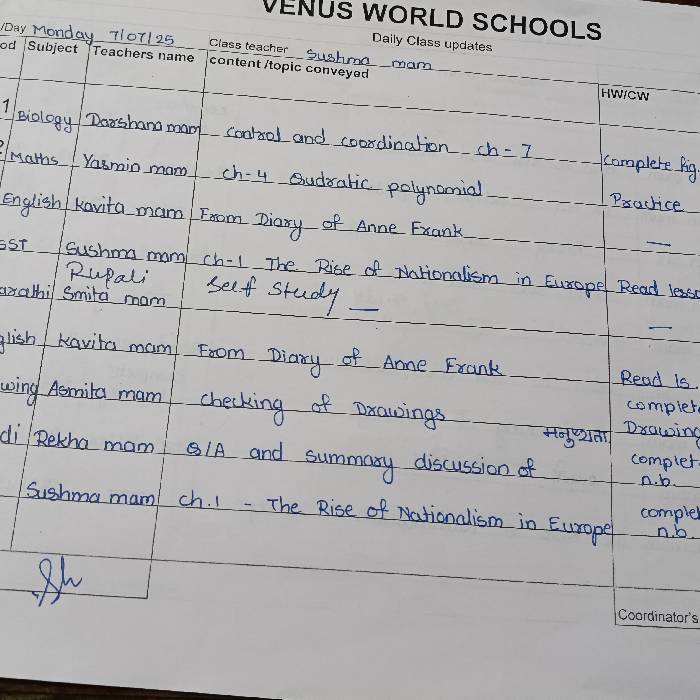 VENUS WORLD SCHOOLS
/Day Monday 7/07/25 Class teacher Sushma mam Daily Class updates
od Subject Teachers name content /topic conveyed HW/CW
1 Biology Darshana mam Control and coordination ch-7 Complete fig.
Maths Yasmin mam ch-4 Qudratic polynomial Practice
English Kavita mam From Diary of Anne Frank —
SST Sushma mam ch-1 The Rise of Nationalism in Europe Read lesso
arathi Rupali Smita mam Self Study — —
glish Kavita mam From Diary of Anne Frank Read ls.
wing Asmita mam checking of Drawings complet. Drawing
di Rekha mam Q/A and summary discussion of मनुष्यता complet. n.b.
Sushma mam ch.1 - The Rise of Nationalism in Europe complet n.b.
Coordinator's